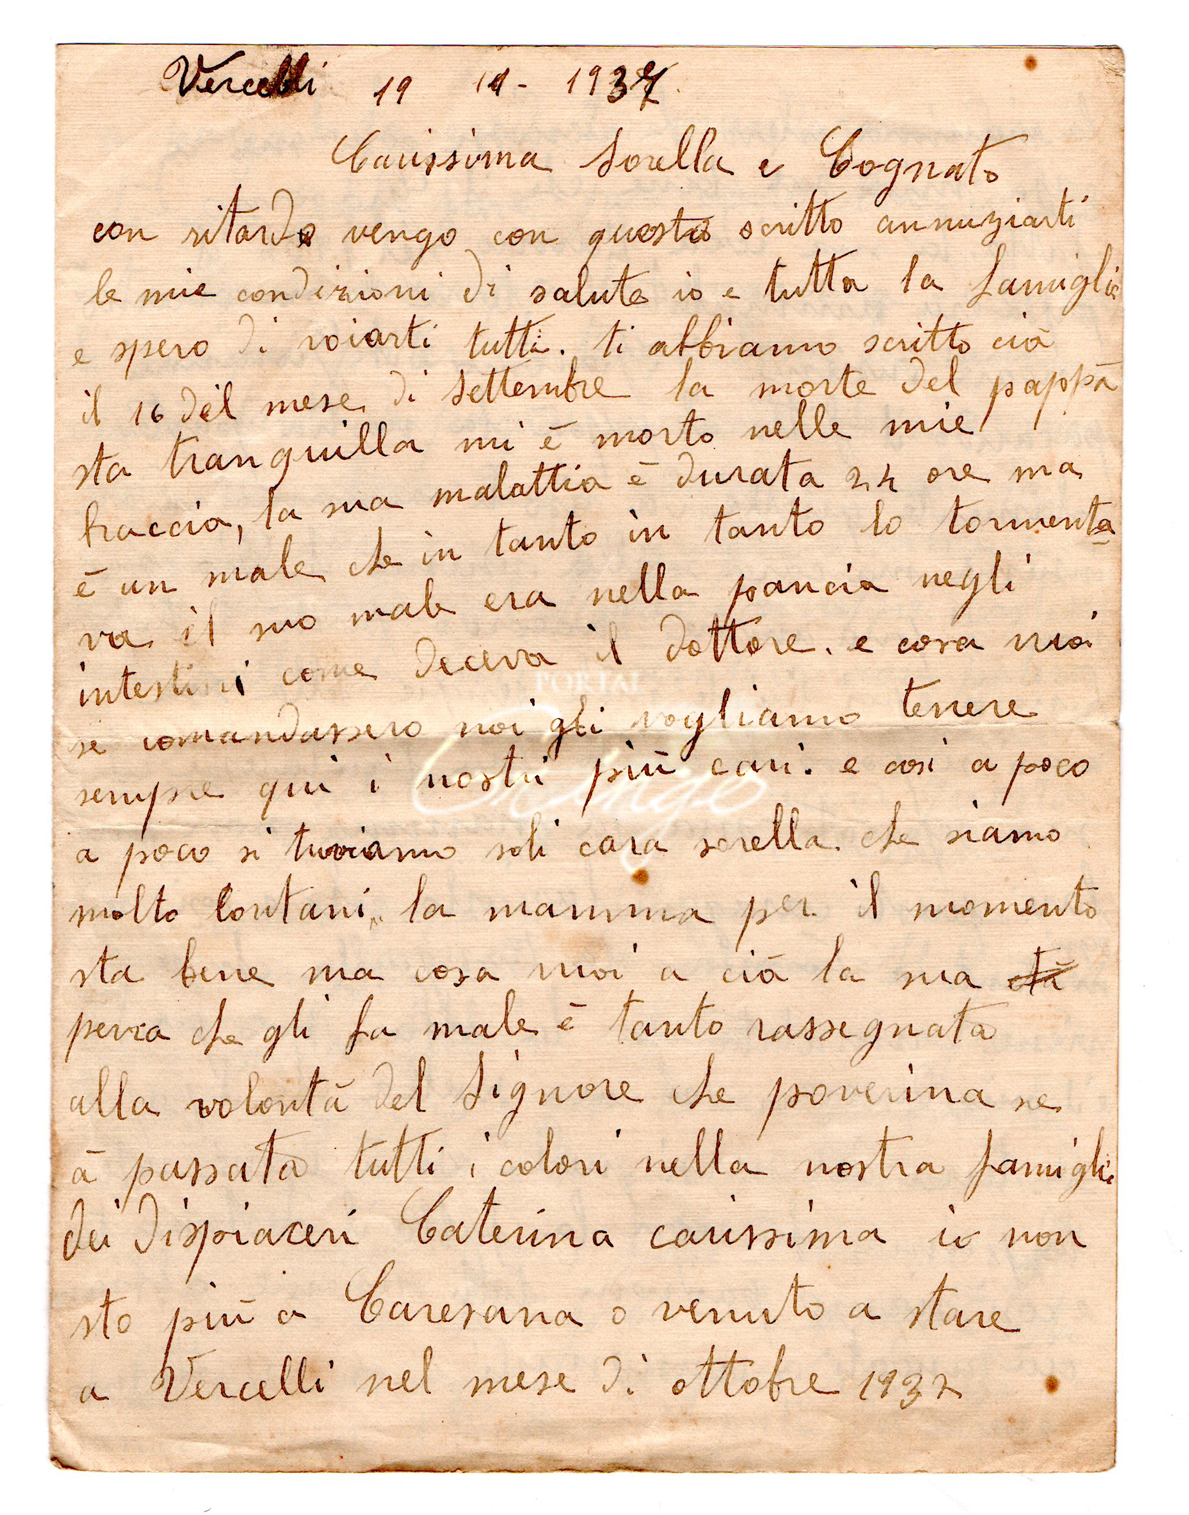 Vercelli 19 11 - 1937.
Carissima Sorella e Cognato
con ritardo vengo con questo scritto annuziarti
le mie condizioni di salute io e tutta la famiglia
e spero di voiarti tutti. ti abbiamo scritto cià
il 16 del mese di Settembre la morte del pappà
sta tranquilla mi è morto nelle mie
braccia, la sua malattia è durata 24 ore ma
è un male che in tanto in tanto lo tormenta
va il suo male era nella pancia negli
intestini come deceva il dottore. e cosa vuoi
se comandassero noi gli vogliamo tenere
sempre qui i nostri più cari. e così a poco
a poco si troviamo soli cara sorella. che siamo
molto lontani, la mamma per il momento
sta bene ma cosa vuoi a cià la sua età
penza che gli fa male è tanto rassegnata
alla volontà del Signore che poverina ne
à passata tutti i colori nella nostra famiglia
dei dispiaceri Caterina carissima io non
sto più a Caresana o venuto a stare
a Vercelli nel mese di ottobre 1937
PORTAL
Gringo